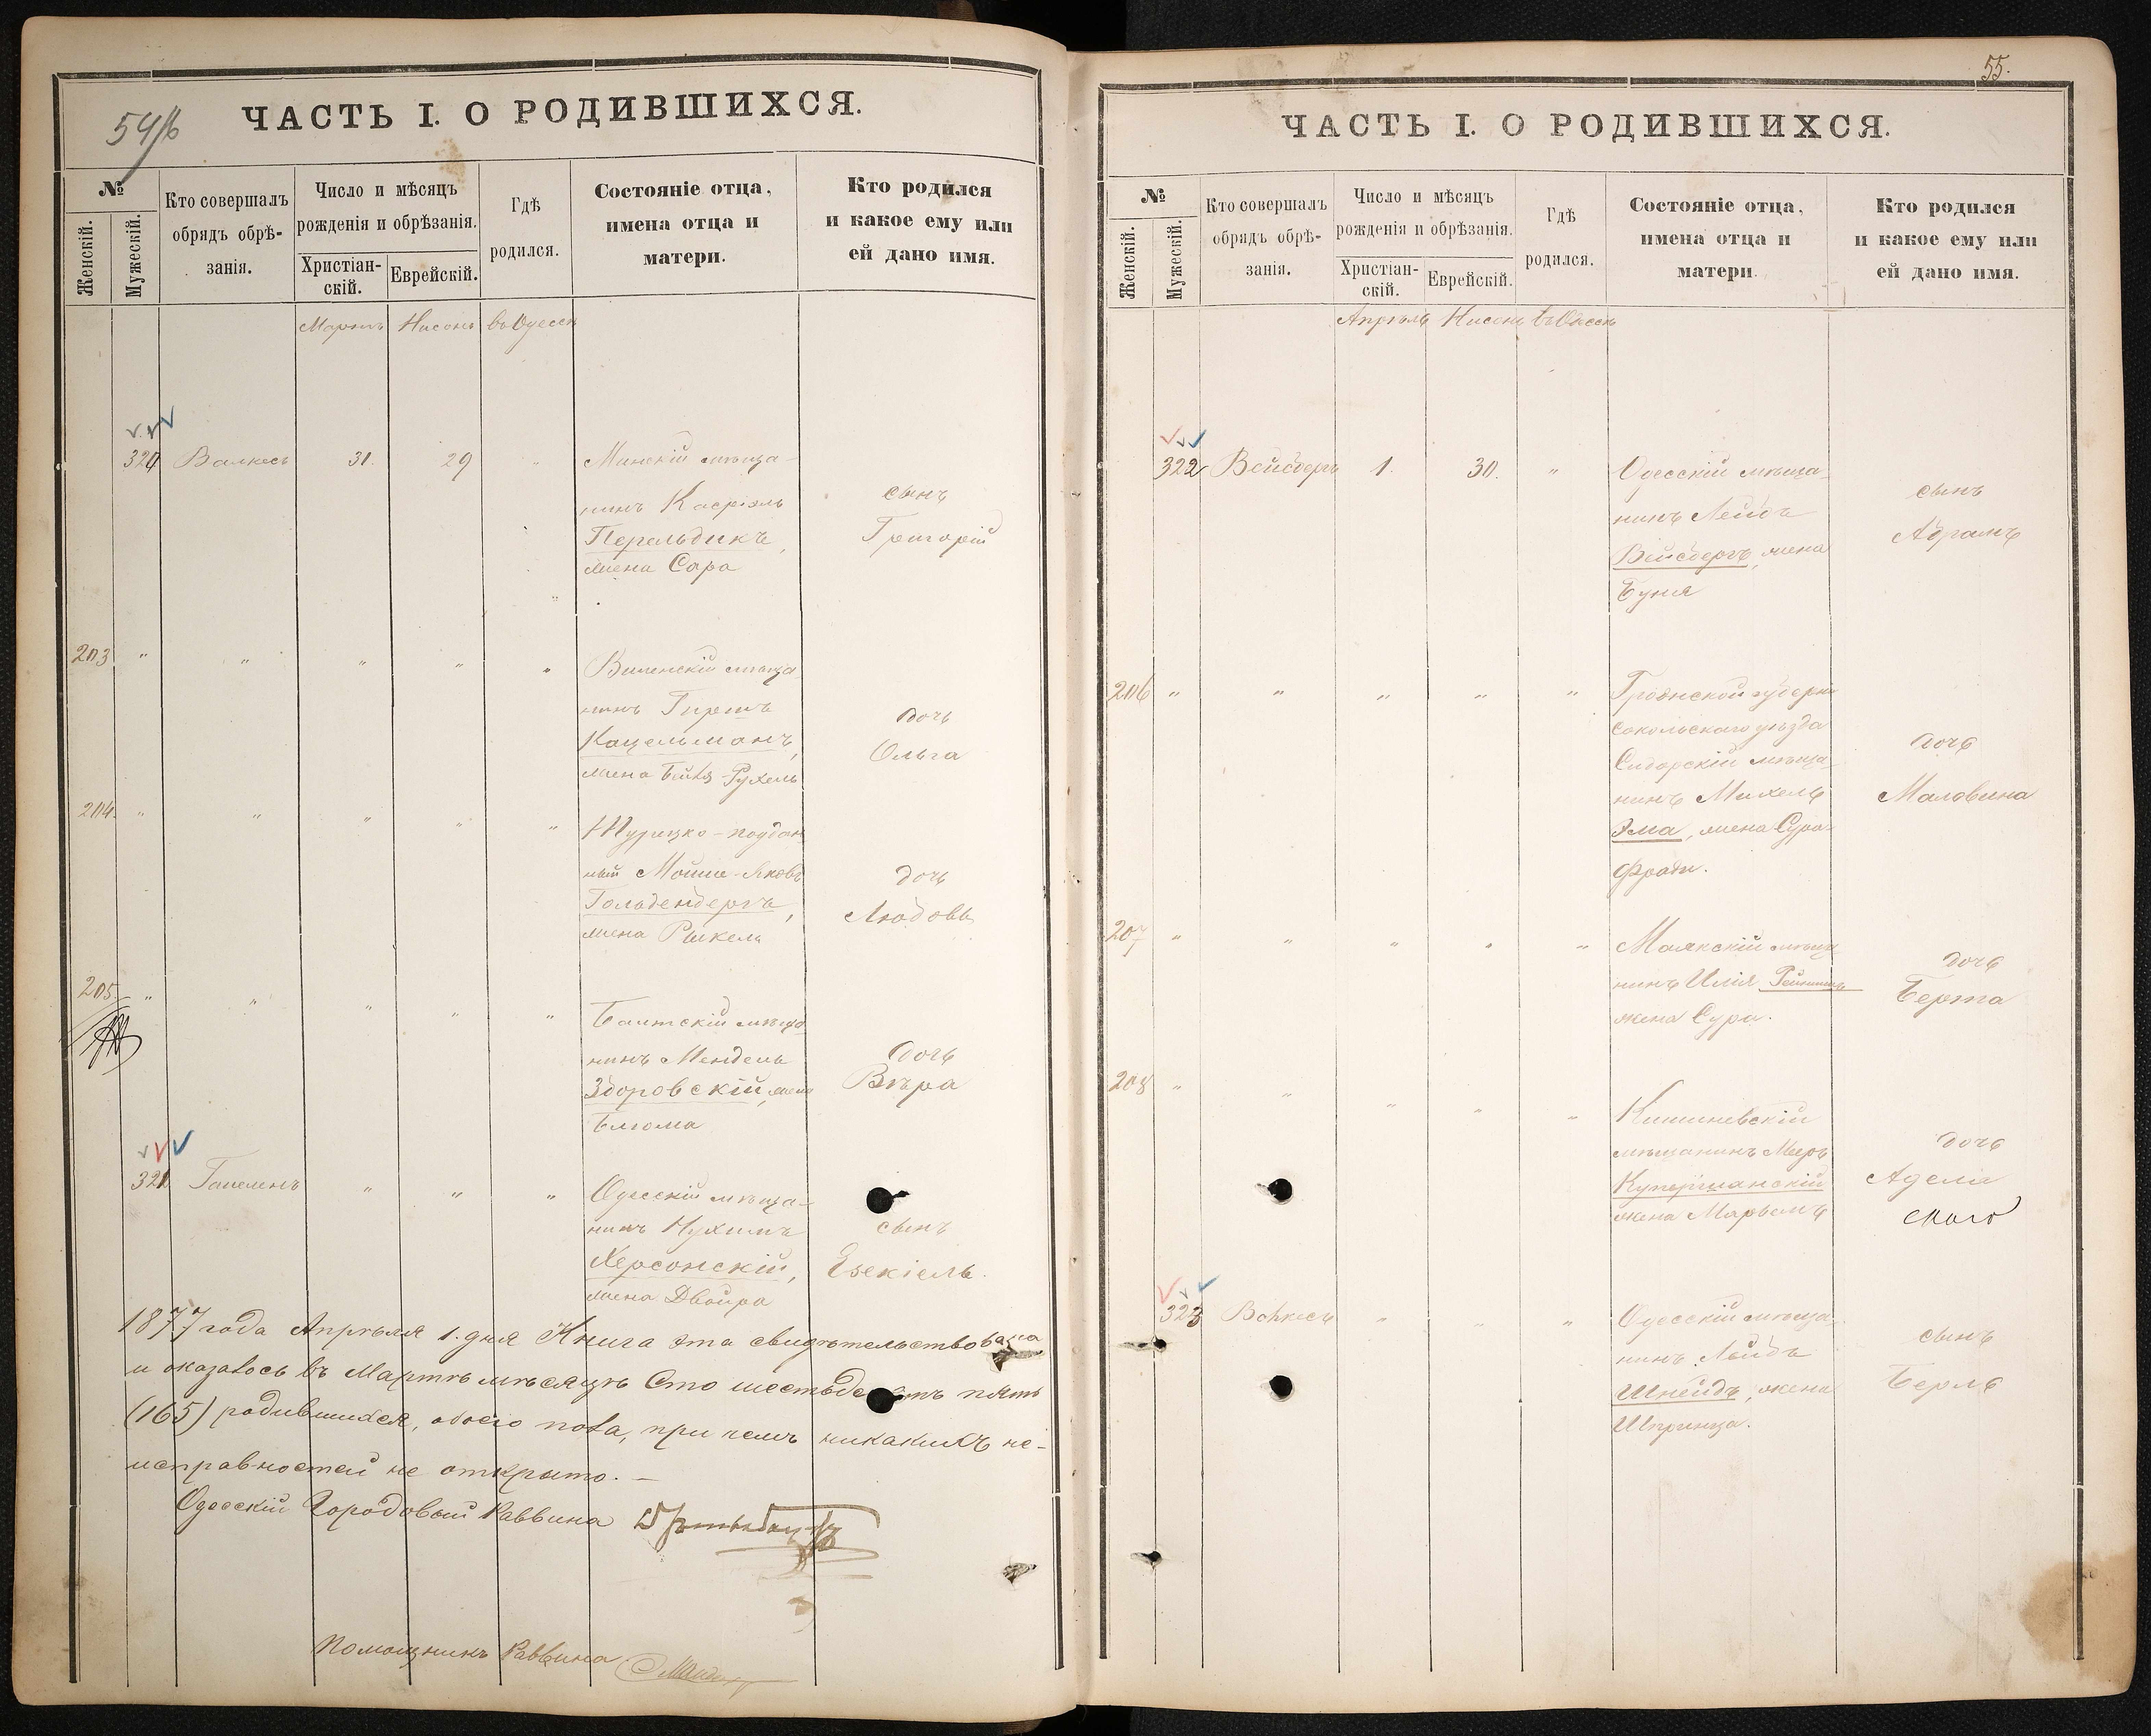 54/б
ЧАСТЬ I. О РОДИВШИХСЯ.
№
Женскій.
Мужескій.
Кто совершалъ
обрядъ обрѣ-
занія.
Число и мѣсяцъ
рожденія и обрѣзанія.
Христіан-
скій.
Еврейскій.
Гдѣ
родился.
Состояніе отца,
имена отца и
матери.
Кто родился
и какое ему или
ей дано имя.
Мартъ Нисонъ въ Одессѣ
320 Валкесъ 31. 29 " Минскій мѣща-
нинъ Касріэль
Перельдикъ,
жена Сара
сынъ
Григорій
203 " " " " " Виленскій мѣща
нинъ Гиршъ
Кацельманъ,
жена Бейла-Рухель
дочь
Ольга
204. " " " " " Турецко-поддан
ный Мойше-Яковъ
Гольденбергъ,
жена Рыкель
дочь
Любовь
205. " " " " " Балтскій мѣща
нинъ Мендель
Здоровскій, жена
Блюма
дочь
Вѣра
321 " " " Одесскій мѣща-
нинъ Нухимъ
Херсонскій,
жена Двойра
сынъ
Езекіель.
1877 года Апрѣля 1. дня Книга эта свидѣтельствована
и оказалось въ Мартѣ мѣсяцѣ Сто шестьдесятъ пять
(165) родившихся, обоего пола, при чемъ никакихъ не-
исправностей не открыто. —
Одесскій Городовый Раввинъ
Помощникъ Раввина
55.
ЧАСТЬ I. О РОДИВШИХСЯ.
№
Женскій.
Мужескій.
Кто совершалъ
обрядъ обрѣ-
занія.
Число и мѣсяцъ
рожденія и обрѣзанія.
Христіан-
скій.
Еврейскій.
Гдѣ
родился.
Состояніе отца,
имена отца и
матери.
Кто родился
и какое ему или
ей дано имя.
Апрѣль Нисонъ въ Одессѣ
322 Вейсбергъ 1. 30. " Одесскій мѣща-
нинъ Лейбъ
Вейсбергъ, жена
Буня
сынъ
Абрамъ
206 " " " " " Гродненской губерніи
Сокольскаго уѣзда
Сидорскій мѣща-
нинъ Михель
Эма, жена Сура-
Фрады.
дочь
Маловина
207 " " " " " Маякскій мѣща
нинъ Илія
жена Сура.
дочь
Берта
208 " " " " " Кишиневскій
мѣщанинъ Мееръ
Купершанскій
жена Марьемъ
дочь
Адель
323 Валкесъ " " " Одесскій мѣща
нинъ Лейбъ
Шнейдъ, жена
Шпринца.
сынъ
Берлъ